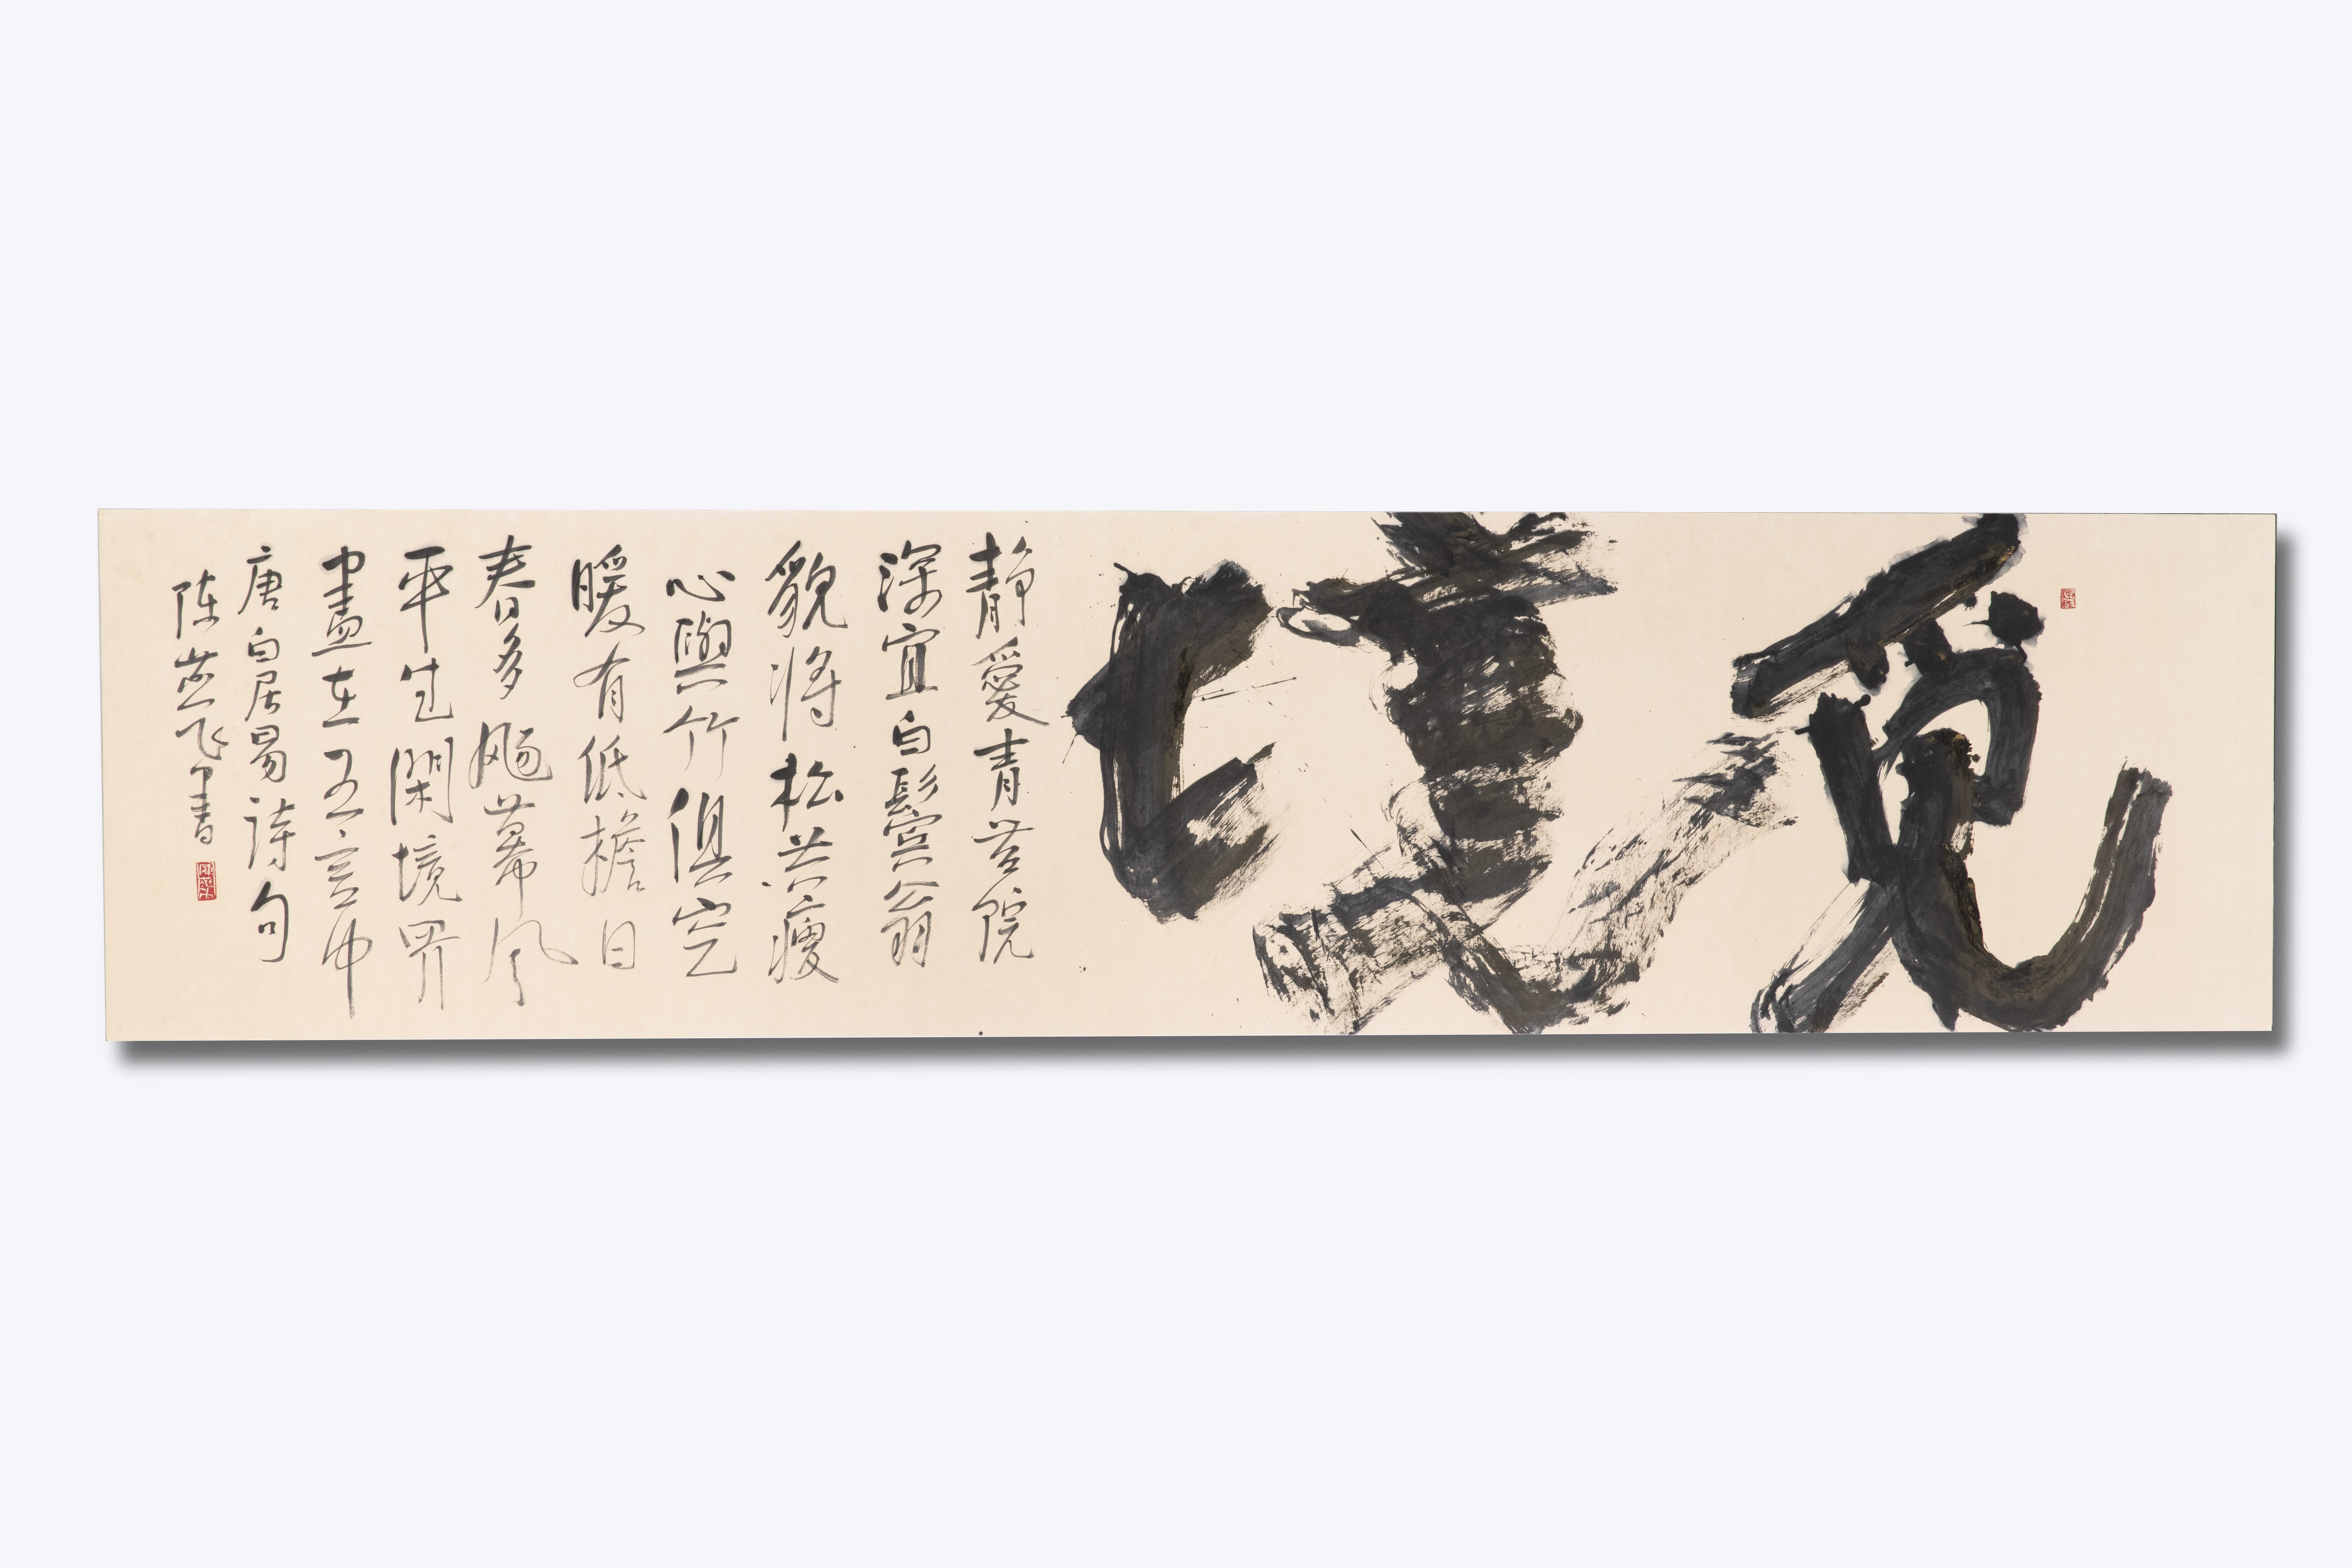 静愛青苔院
深宜白鬢翁
貌將松共瘦
心與竹俱空
暖有低檐日
春多颺幕风
平生閑境界
盡在五言中
唐白居易詩句
陈飞書